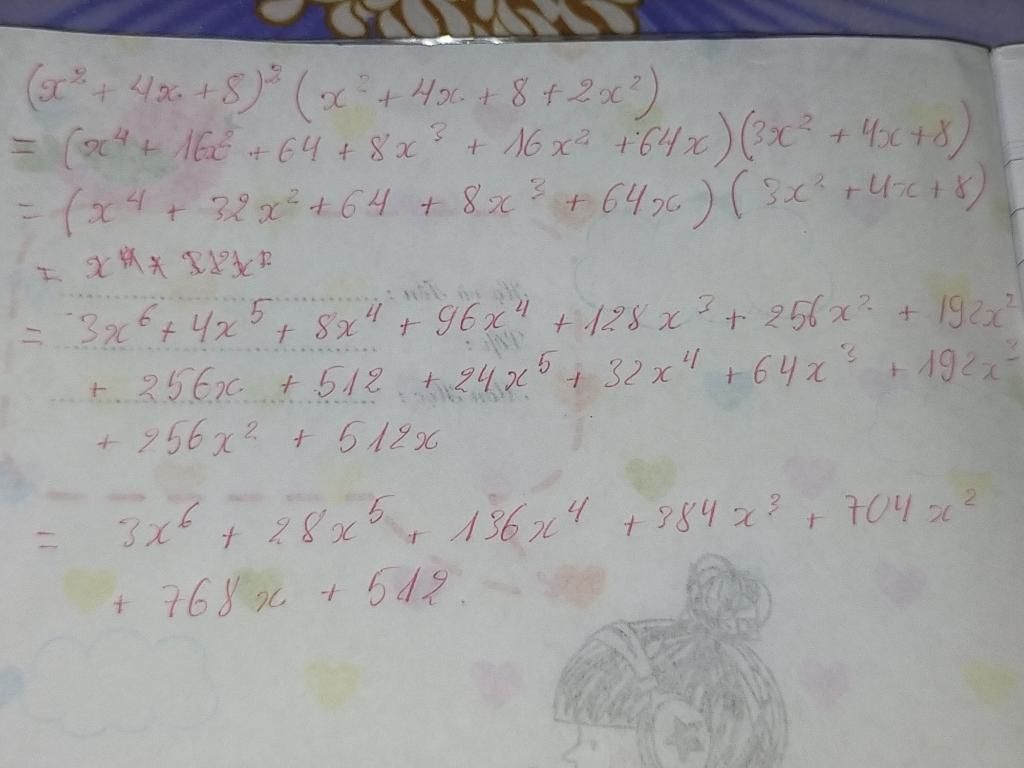 (x² + 4x + 8)² (x² + 4x + 8 + 2x²)
= (x⁴ + 16x² + 64 + 8x³ + 16x² + 64x)(3x² + 4x + 8)
= (x⁴ + 32x² + 64 + 8x³ + 64x) (3x² + 4x + 8)
=
= 3x⁶ + 4x⁵ + 8x⁴ + 96x⁴ + 128x³ + 256x² + 192x²
+ 256x + 512 + 24x⁵ + 32x⁴ + 64x³ + 192x³
+ 256x² + 512x
= 3x⁶ + 28x⁵ + 136x⁴ + 384x³ + 704x²
+ 768x + 512.